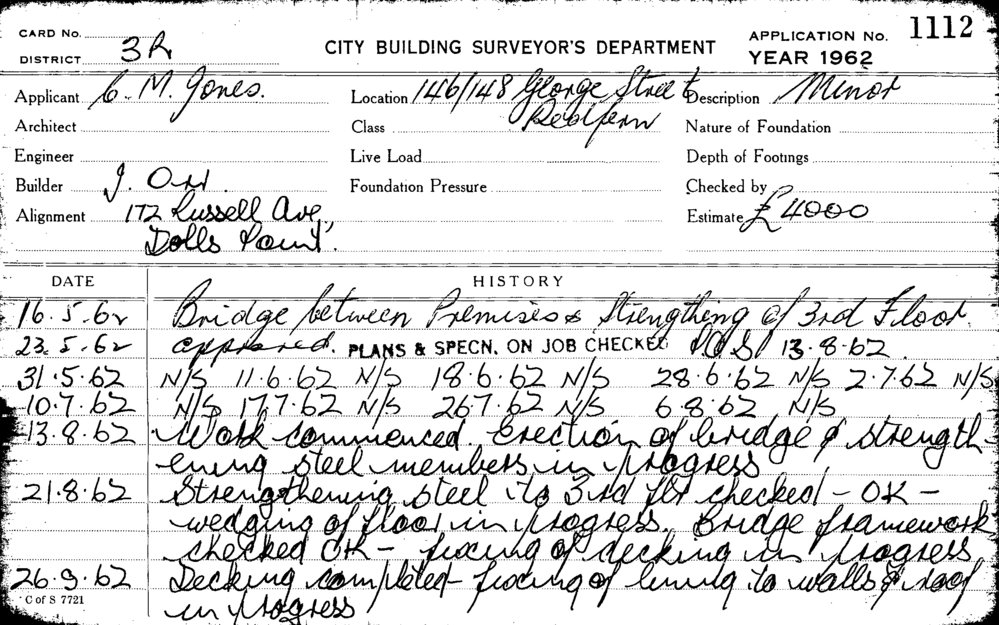 CARD No.
DISTRICT 3R
CITY BUILDING SURVEYOR'S DEPARTMENT
APPLICATION No. 1112
YEAR 1962
Applicant C. M. Jones. Location 146/148 George Street Description Minor
Redfern
Architect Class Nature of Foundation
Engineer Live Load Depth of Footings
Builder J. Orr. Foundation Pressure Checked by
Alignment 172 Russell Ave, Estimate £4000
Dolls Point.
DATE HISTORY
16.5.62 Bridge between Premises & Strengthing of 3rd Floor.
23.5.62 approved. PLANS & SPECN. ON JOB CHECKED 13.8.62.
31.5.62 N/S 11.6.62 N/S 18.6.62 N/S 28.6.62 N/S 2.7.62 N/S
10.7.62 N/S 17.7.62 N/S 26.7.62 N/S 6.8.62 N/S
13.8.62 Work commenced. Erection of bridge & strength-
ening steel members in progress
21.8.62 Strengthening steel to 3rd flr checked - OK -
wedging of floor in progress. Bridge framework
checked OK - fixing of decking in progress
26.9.62 Decking completed - fixing of lining to walls & roof
in progress
C of S 7721